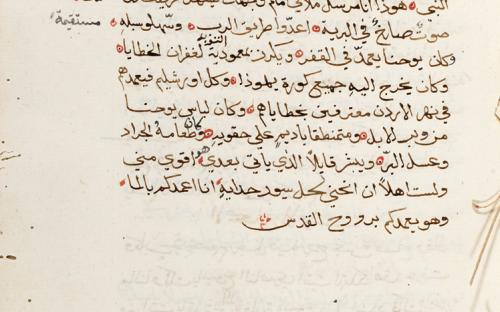 النبي هوذا انا مرسل ملاكي امام
صوت صايح في البريه اعدوا طريق الرب وسهلوا سبله
مستقيمة
وكان يوحنا يعمد في القفر ويكرز بمعمودية التوبه لغفران الخطايا
وكان يخرج اليه جميع كورة يهوذا وكل اورشليم فيعمدهم
في نهر الاردن معترفين بخطاياهم وكان لباس يوحنا
من وبر لابل ومتمنطقا باديم علي حقويه وكان طعامه الجراد
وعسل البر ويبشر قايلا الذي ياتي بعدي هو اقوي مني
ولست اهلا ان انحني لحل سيور حدايه انا اعمدكم بالما
وهو يعمدكم بروح القدس